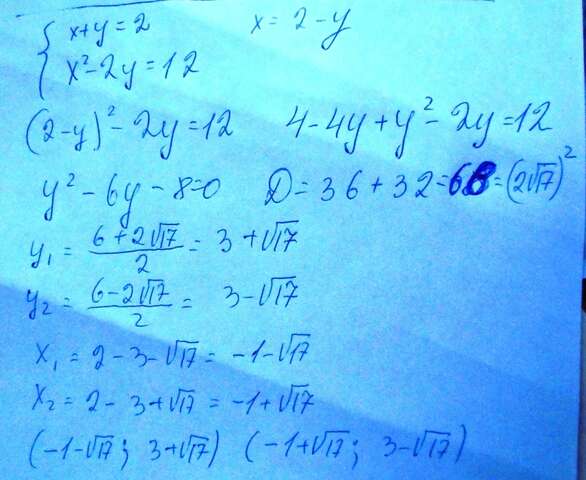 { x+y=2    x=2-y
x²-2y=12
(2-y)²-2y=12    4-4y+y²-2y=12
y²-6y-8=0    D=36+32=68=(2√17)²
y₁ = (6+2√17)/2 = 3+√17
y₂ = (6-2√17)/2 = 3-√17
x₁ = 2-3-√17 = -1-√17
x₂ = 2-3+√17 = -1+√17
(-1-√17; 3+√17) (-1+√17; 3-√17)